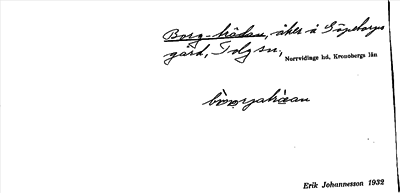 Borg-hädan, åker å Göpetorps
gård, Tolg sn, Norrvidinge hd, Kronobergs län
Erik Johannesson 1932